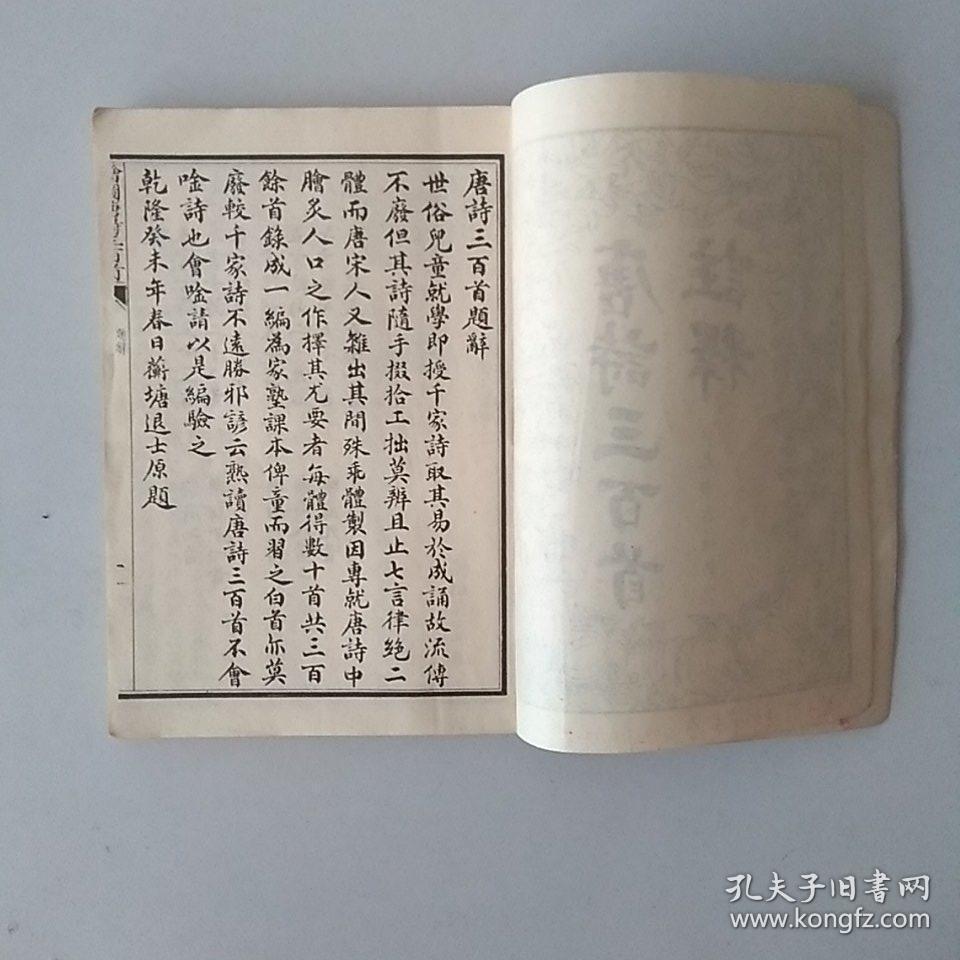 唐詩三百首題辭
世俗兒童就學即授千家詩取其易於成誦故流傳
不廢但其詩隨手掇拾工拙莫辨且止七言律絕二
體而唐宋人又雜出其間殊乖體製因專就唐詩中
膾炙人口之作擇其尤要者每體得數十首共三百
餘首錄成一編為家塾課本俾童而習之白首亦莫
廢較千家詩不遠勝邪諺云熟讀唐詩三百首不會
唫詩也會唫請以是編驗之
乾隆癸未年春日蘅塘退士原題
註釋
唐詩三百首
孔夫子旧书网
www.kongfz.com